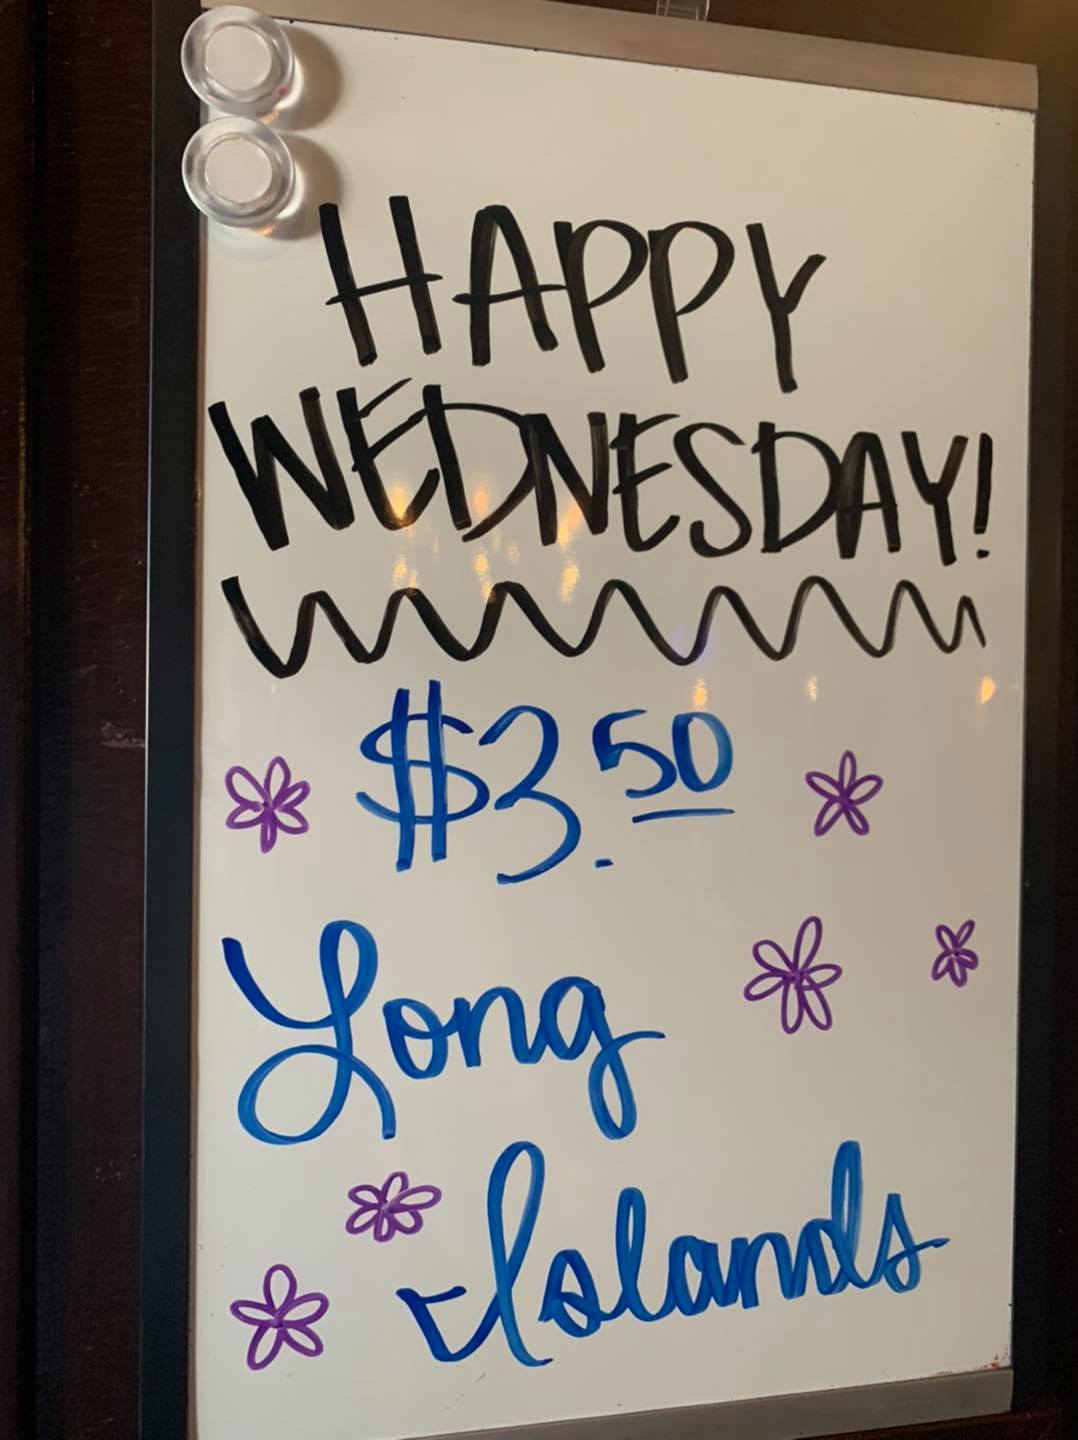 HAPPY
WEDNESDAY!
$3.50
Long
Islands